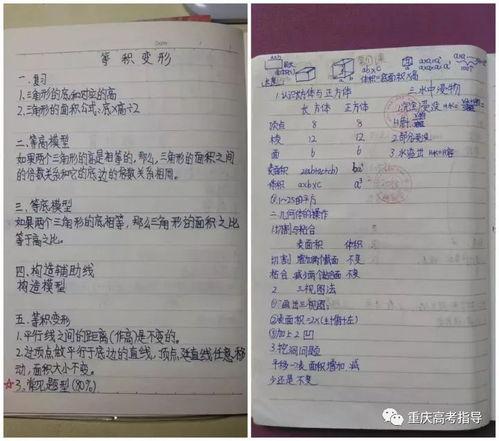 等积变形
一.复习
1.三角形的底和对应的高
2.三角形的面积公式:底×高÷2
二.等高模型
如果两个三角形的高是相等的,那么,三角形的面积之间
的倍数关系和它的底边的倍数关系相同。
三.等底模型
如果两个三角形的底相等,那么三角形的面积之比
等于高之比。
四.构造辅助线
构造模型
五.等积变形
1.平行线之间的距离(作高)是不变的。
2.过顶点做平行于底边的直线,顶点延直线任意移
动,面积大小不变。
☆3.常见题型(80%)
体积=底面积×高
1.认识长方体与正方体
长方体 正方体
顶点 8 8
棱 12 12
面 6 6
表面积
体积 a×b×c a³
二.几何体的操作
1.切割与粘合
表面积 体积
切割 增加两个截面 不变
粘合 减少两个截面 不变
2. 三视图法
①.画出三视图
②表面积=2×(上+前+左)
③加上2凹
3.挖洞问题
平移→表面积增加.减
少还是不变
三.水中浸物
1.完全浸没
2.部分浸没
3.水溢出
重庆高考指导